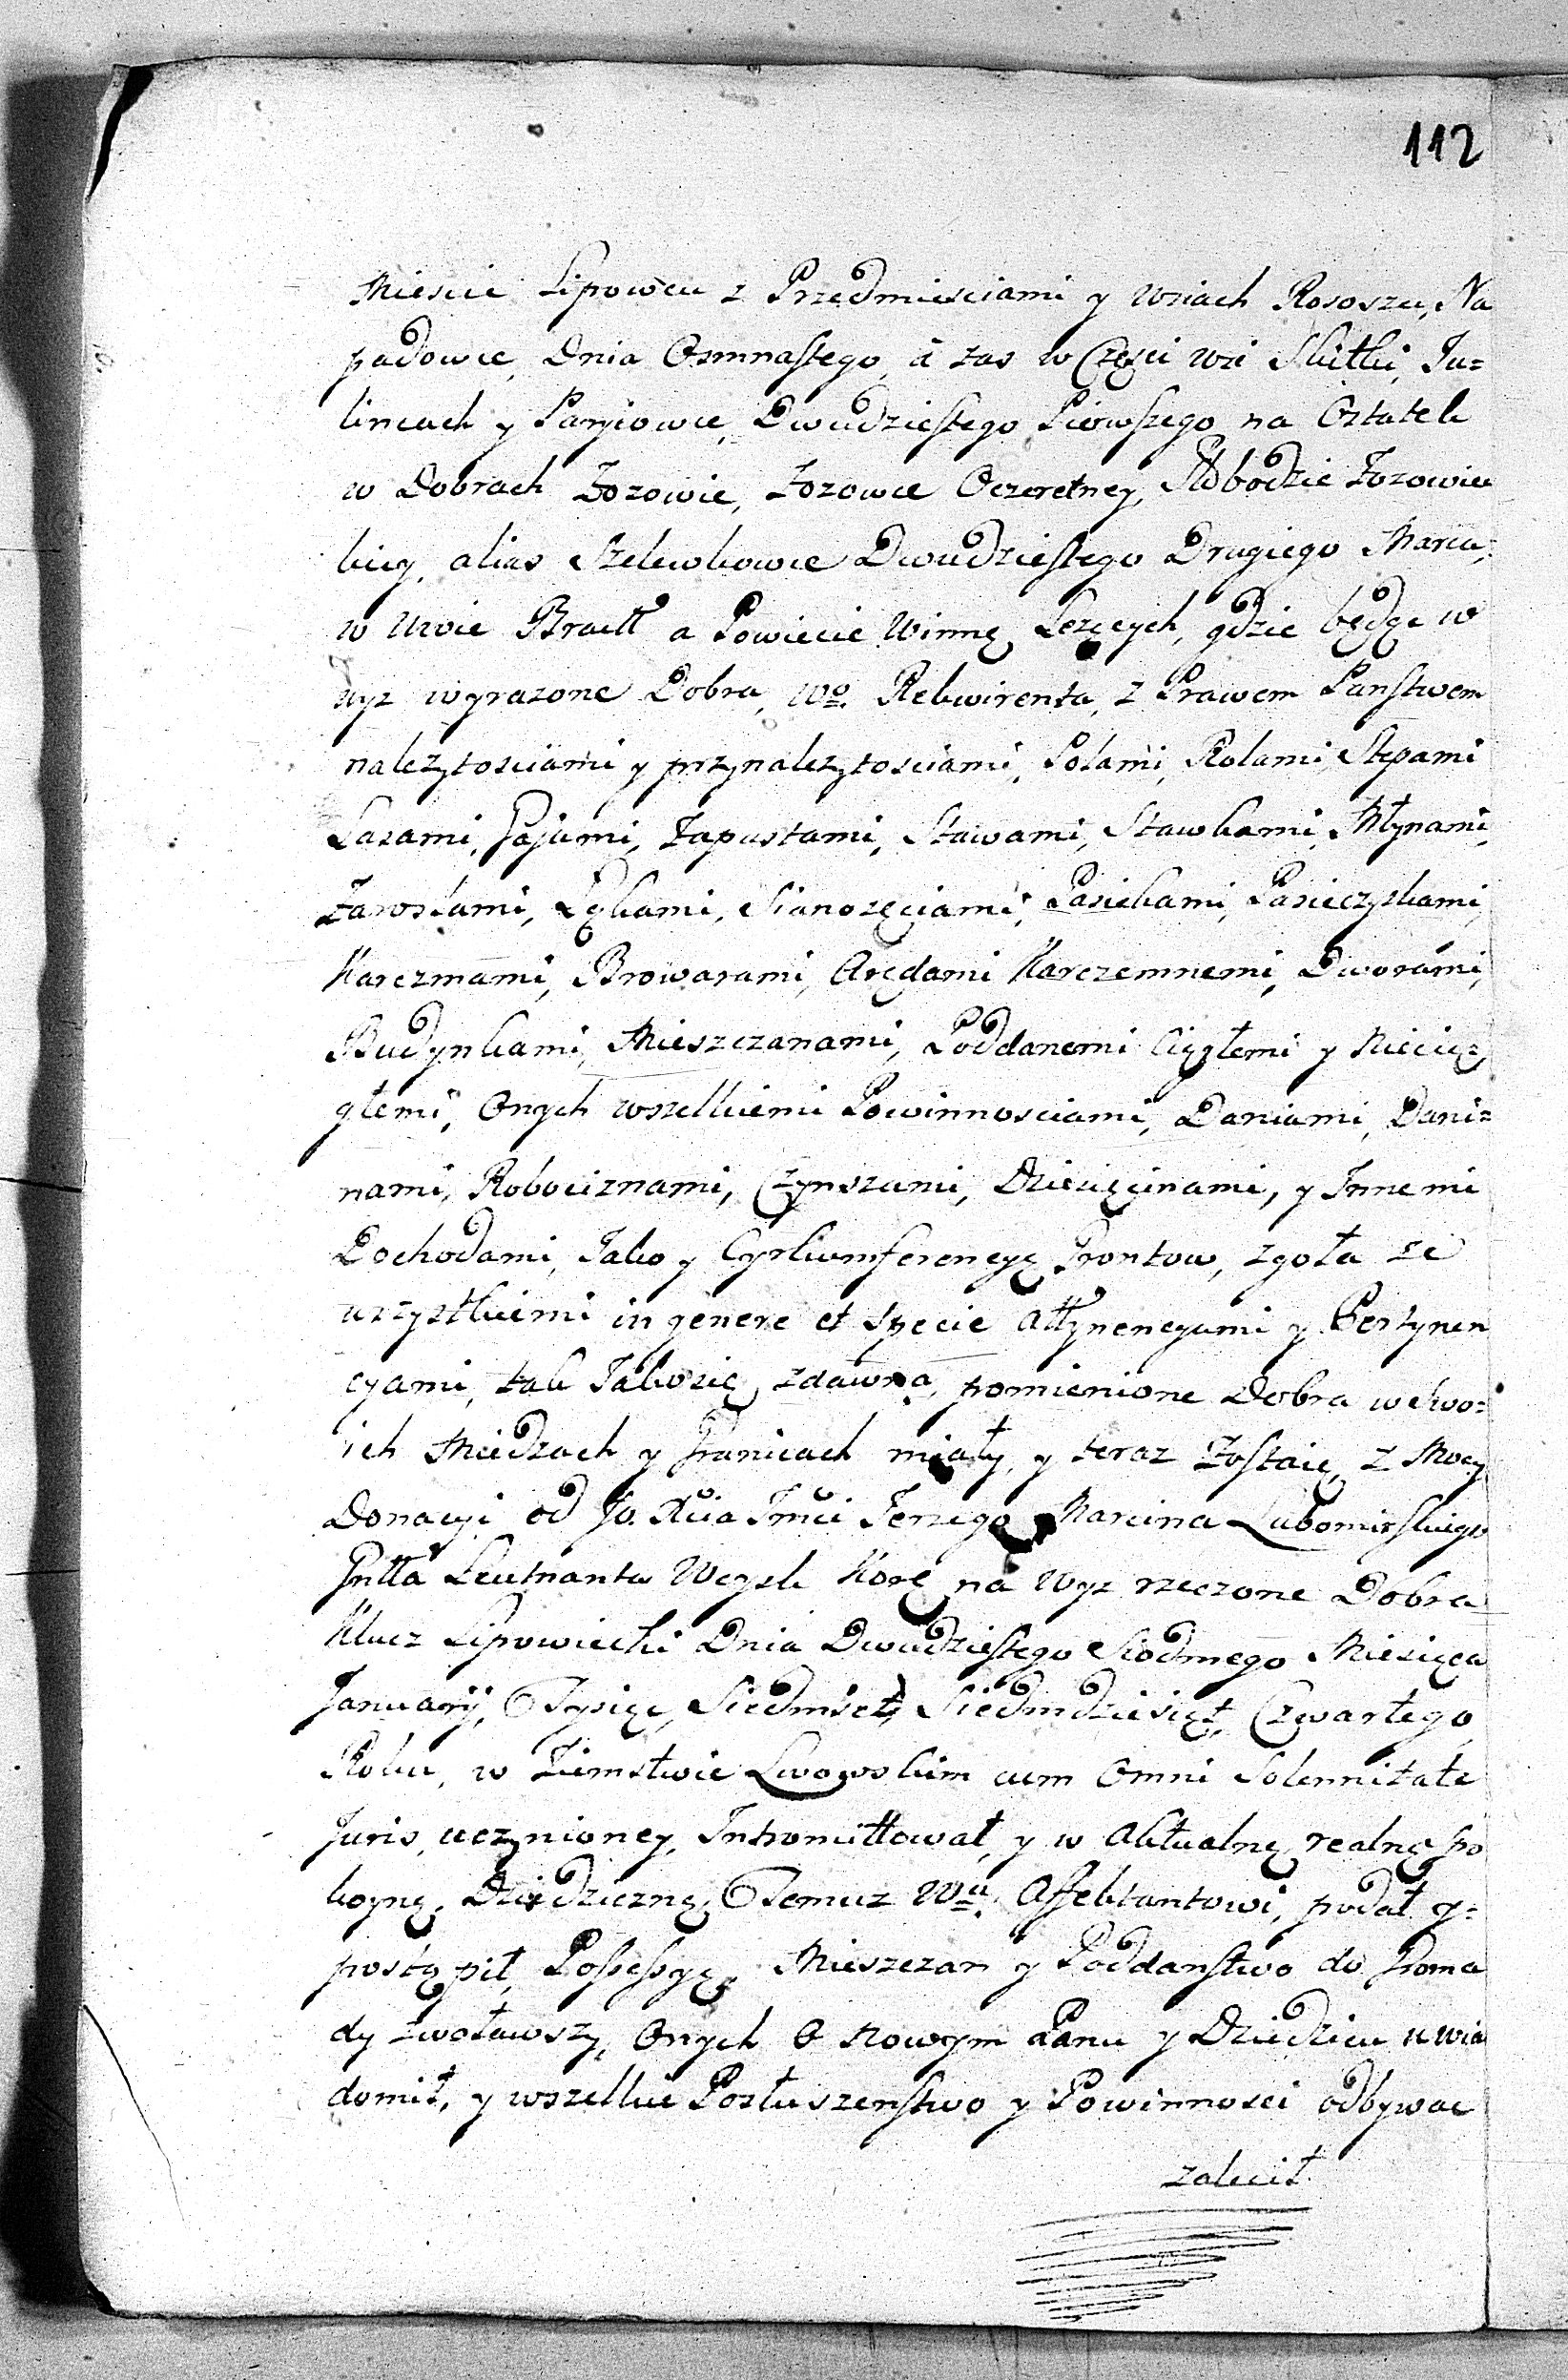 112
Miescie Lipowcu z Przedmiesciami y wsiach Rososzu, Na
padowce, Dnia Osmnastego, á zas w Częsci wsi Skitki, Ju=
lincach y Paryiowce, Dwudziestego Pierwszego na Ostatek
w Dobrach Zozowie, Zozowce Oczeretney, Słobodzie Zozowiec
kiey, alias Szelewkowce Dwudziestego Drugiego Marca,
w Wwie Bracłł a Powiecie Winnę Lezących, gdzie będąc w
wyz wyrazone Dobra, Wo. Rekwirenta, z Prawem Panstwem
nalezytosciami y przynalezytosciami, Polami, Rolami, Stepami
Lasami, Gajami, Zapustami, Stawami, Stawkami, Młynami,
Zaroslami, Łąkami, Sianozęciami, Pasiekami, Pasieczyskami,
Karczmami, Browarami, Arędami Karczemnemi, Dworami,
Budynkami, Mieszczanami, Poddanemi Ciągłemi y Niecią=
głemi, Onych wszelkiemi Powinnosciami, Daniami, Dani=
nami, Robociznami, Czynszami, Dziesięcinami, y Innemi
Dochodami, Jako y Cyrkumferencyą Grontow, zgoła ze
wszystkiemi in genere et specie attynencyami y Pertynen
cyami, tak Jakosię zdawna pomienione Dobra wswo=
ich Miedzach y Granicach miały, y teraz Zostaią, z Mocy
Donacyi od Jo. Xcia Jmci Jerzego Marcina Lubomirskiego
Gnłła Leutnanta Woysk Korę na Wyz rzeczone Dobra
Klucz Lipowiecki Dnia Dwudziestego Siodmego Miesiąca
January, Tysiąc, Siedmset, Siedmdziesiąt, Czwartego
Roku, w Ziemstwie Lwowskim cum Omni Solennitate
Juris, uczynioney, Intromittował, y w Aktualną, realną spo
koyną, Dziedziczną, Temuz Wu. Affektantowi, podał y=
postąpił, Possessyą. Mieszczan y Poddanstwo do Groma
dy zwoławszy, Onych O Nowym Panu y Dziedzicu uwia
domił, y wszelkie Posłuszenstwo y Powinnosci odbywac
zalecił